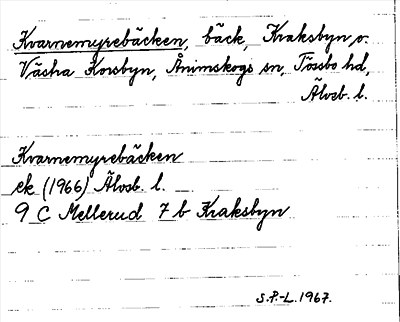 Kvarnemyrebäcken, bäck, Kraksbyn o.
Västra Korsbyn, Ånimskogs sn, Tössbo hd,
Älvsb. l.
Kvarnemyrebäcken
ek (1966) Älvsb. l.
9 C Mellerud 7 b Kraksbyn
S.P.-L. 1967.